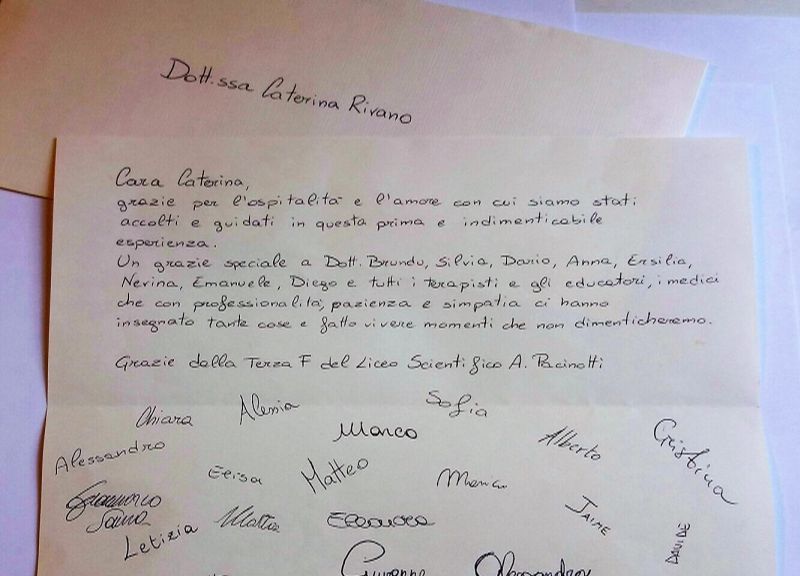 Dott.ssa Caterina Rivano
Cara Caterina,
grazie per l'ospitalità e l'amore con cui siamo stati
accolti e guidati in questa prima e indimenticabile
esperienza.
Un grazie speciale a Dott. Brundu, Silvia, Dario, Anna, Ersilia,
Nevina, Emanuele, Diego e tutti i terapisti e gli educatori, i medici
che con professionalità, pazienza e simpatia ci hanno
insegnato tante cose e fatto vivere momenti che non dimenticheremo.
Grazie dalla Terza F del Liceo Scientifico A. Pacinotti
Chiara Alessia Sofia
Marco Alberto Cristina
Alessandro Elisa Matteo
Letizia Mattia Eleonora JAIME DAVIDE